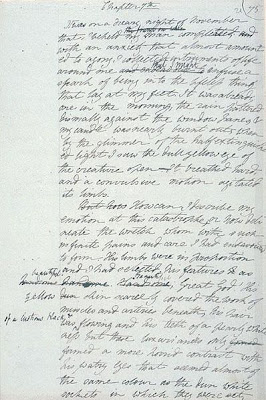 Chapter 7th
It was on a dreary night of November
that I beheld my man completed and
with an anxiety that almost amount
ed to agony, I collected instruments of life
around me that I might infuse a
spark of being into the lifeless thing
that lay at my feet. It was already
one in the morning, the rain pattered
dismally against the window panes, &
my candle was nearly burnt out, when
by the glimmer of the half extinguish
ed light I saw the dull yellow eye of
the creature open — It breathed hard,
and a convulsive motion agitated
its limbs.
But how How can I describe my
emotion at this catastrophe; or how deli
neate the wretch whom with such
infinite pains and care I had endeavoured
to form. His limbs were in proportion
and I had selected his features as
beautiful handsome. Great God! His
yellow skin scarcely covered the work of
muscles and arteries beneath; his hair
of a lustrous black &
was flowing and his teeth of a pearly white
ness but these luxuriances only
formed a more horrid contrast with
his watry eyes that seemed almost of
the same colour as the dun white
sockets in which they were set,